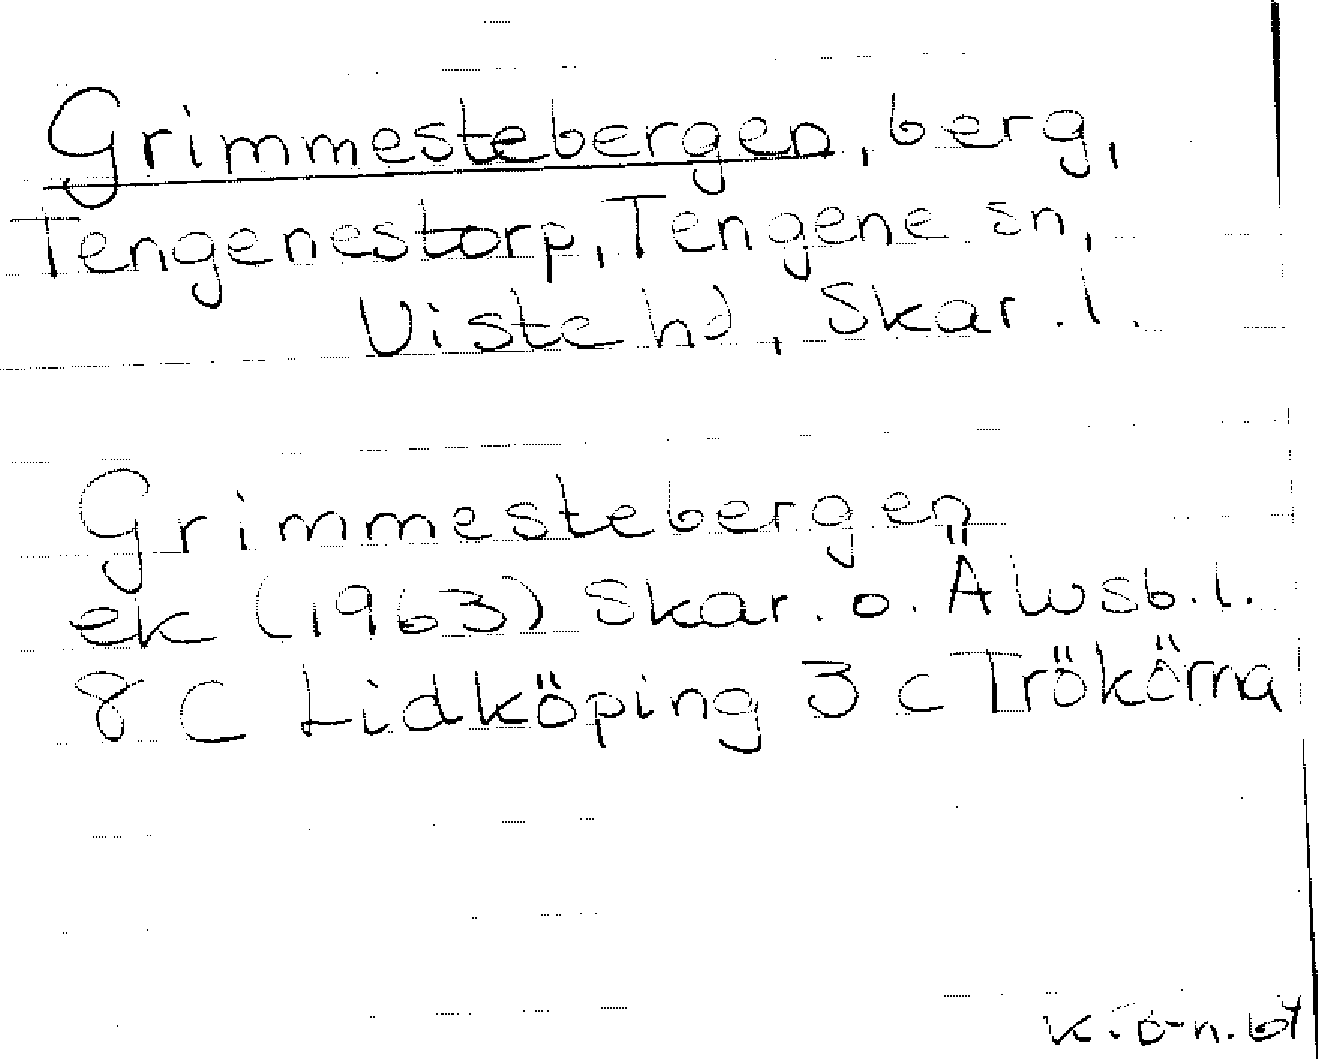 Grimmestebergen, berg,
Tengenestorp, Tengene sn,
Viste hd, Skar. l.
Grimmestebergen
ek (1963) Skar. o. Älvsb. l.
8 C Lidköping 3 c Trökörna